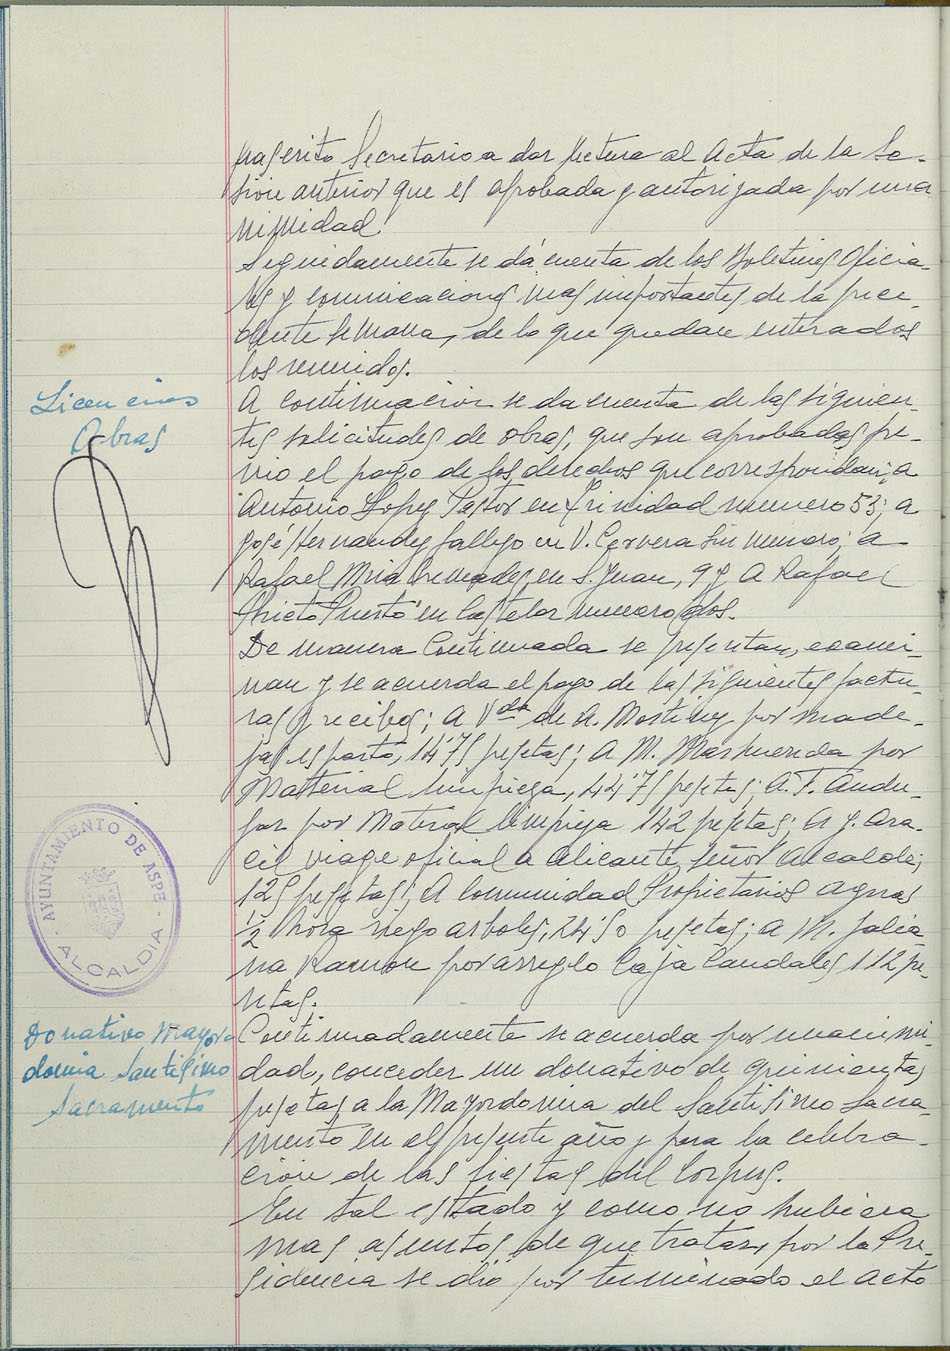 frascrito Secretario a dar lectura al Acta de la Se-
sion anterior que es aprobada y autorizada por una
nimidad
Seguidamente se dá cuenta de los Boletines Oficia-
les y comunicaciones mas importantes de la prece-
dente semana, de lo que quedan enterados
los reunidos.
Licencias
Obras
A continuacion se da cuenta de las siguien-
tes solicitudes de obras, que son aprobadas pre-
vio el pago de los derechos que correspondan; a
Antonio Lopez Pastor en Trinidad numero 53; a
José Hernandez Gallego en V. Cervera sin numero; a
Rafael Mira Cremades en S. Juan, 9 y A Rafael
Prieto Puerto en Castelar numero dos.
De manera continuada se presentan, exami-
nan y se acuerda el pago de las siguientes factu-
ras y recibos; A Vda de A. Martinez por made-
jas esparto, 14'75 pesetas; A M. Marhuenda por
Material limpieza, 44'75 pesetas; A. F. Andu-
jar por Material limpieza 142 pesetas; A J. Ara-
cil viage oficial a Alicante, señor Alcalde;
125 pesetas; A Comunidad Propietarios Aguas
½ hora riego arboles, 24'50 pesetas; a M. Galia-
na Ramon por arreglo Caja Caudales 112 pe-
setas.
AYUNTAMIENTO DE ASPE
ALCALDIA
Donativo Mayor
domia Santisimo
Sacramento
Continuadamente se acuerda por unanimi-
dad, conceder un donativo de quinientas
pesetas a la Mayordomia del Santisimo Sacra-
mento en el presente año y para la celebra-
cion de las fiestas del Corpus.
En tal estado y como no hubiera
mas asuntos de que tratar, por la Pre-
sidencia se dió por terminado el acto